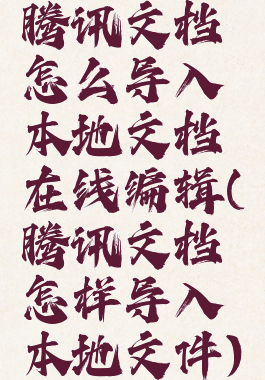 腾讯文档
怎么导入
本地文档
在线编辑(
腾讯文档
怎样导入
本地文件)